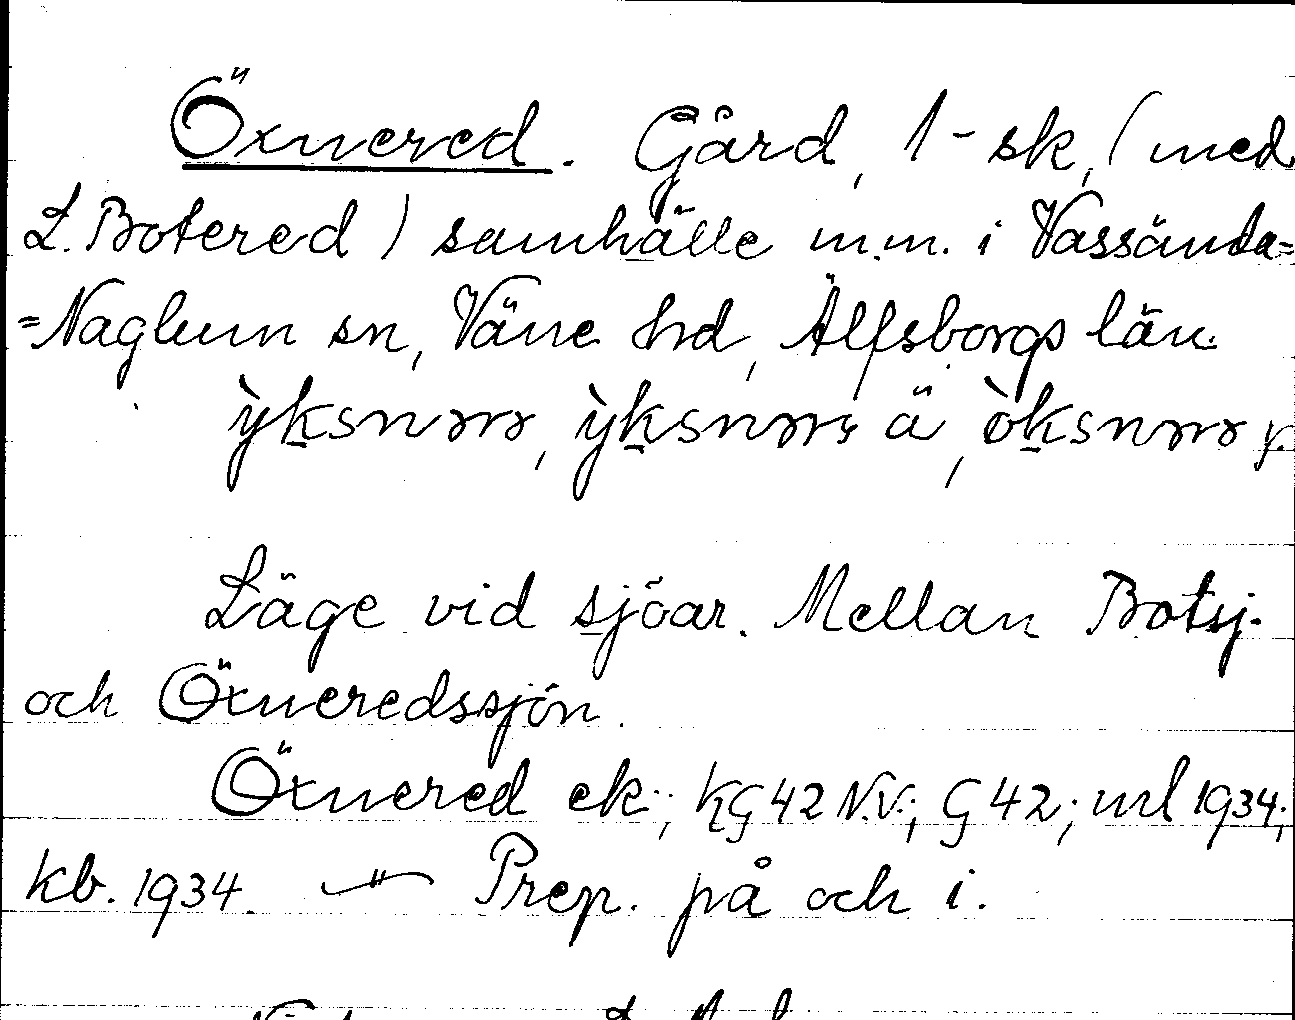 Öxnered. Gård, 1-sk, (med
L. Botered) samhälle m.m. i Vassända=
=Naglum sn, Väne hd, Älfsborgs län.
ä
Läge vid sjöar. Mellan Botsj.
och Öxneredssjön.
Öxnered ek.; KG 42 N.V.; G 42; url 1934;
kb. 1934. — " — Prep. på och i.